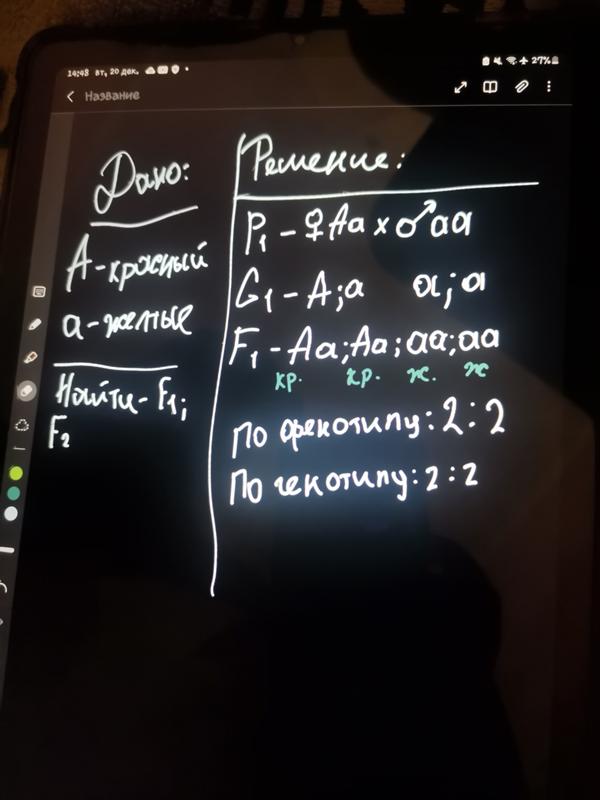 14:48 вт, 20 дек.
27%
Название
Дано:
А-красный
а-желтые
Найти-F₁;
F₂
Решение:
P₁ - ♀Aa x ♂aa
G₁ - A;a a;a
F₁ - Aa;Aa;aa;aa
кр. кр. ж. ж
По фенотипу: 2:2
По генотипу: 2:2